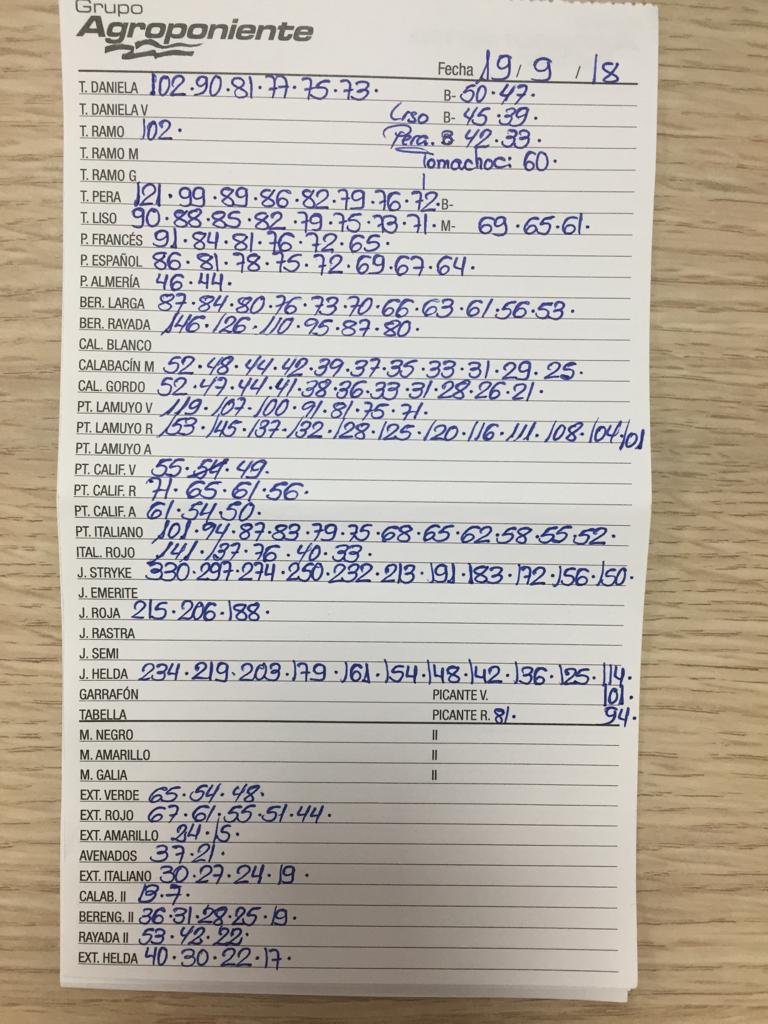 Grupo
Agroponiente
Fecha 19 / 9 / 18
T. DANIELA 102·90·81·77·75·73· B- 50·47·
T. DANIELA V Liso B- 45·39·
T. RAMO 102· Pera. B 42·33·
T. RAMO M Tomachoc: 60·
T. RAMO G
T. PERA 121·99·89·86·82·79·76·72· B-
T. LISO 90·88·85·82·79·75·73·71· M- 69·65·61·
P. FRANCÉS 91·84·81·76·72·65·
P. ESPAÑOL 86·81·78·75·72·69·67·64·
P. ALMERÍA 46·44·
BER. LARGA 87·84·80·76·73·70·66·63·61·56·53·
BER. RAYADA 146·126·110·95·87·80·
CAL. BLANCO
CALABACÍN M 52·48·44·42·39·37·35·33·31·29·25·
CAL. GORDO 52·47·44·41·38·36·33·31·28·26·21·
PT. LAMUYO V 119·107·100·91·81·75·71·
PT. LAMUYO R 153·145·137·132·128·125·120·116·111·108·104·101
PT. LAMUYO A
PT. CALIF. V 55·54·49·
PT. CALIF. R 71·65·61·56·
PT. CALIF. A 61·54·50·
PT. ITALIANO 101·94·87·83·79·75·68·65·62·58·55·52·
ITAL. ROJO 141·137·76·40·33·
J. STRYKE 330·297·274·250·232·213·191·183·172·156·150·
J. EMERITE
J. ROJA 215·206·188·
J. RASTRA
J. SEMI
J. HELDA 234·219·203·179·161·154·148·142·136·125·114·
GARRAFÓN PICANTE V. 101·
TABELLA PICANTE R. 81· 94·
M. NEGRO II
M. AMARILLO II
M. GALIA II
EXT. VERDE 65·54·48·
EXT. ROJO 67·61·55·51·44·
EXT. AMARILLO 24·15·
AVENADOS 37·21·
EXT. ITALIANO 30·27·24·19·
CALAB. II 13·7·
BERENG. II 36·31·28·25·19·
RAYADA II 53·42·22·
EXT. HELDA 40·30·22·17·